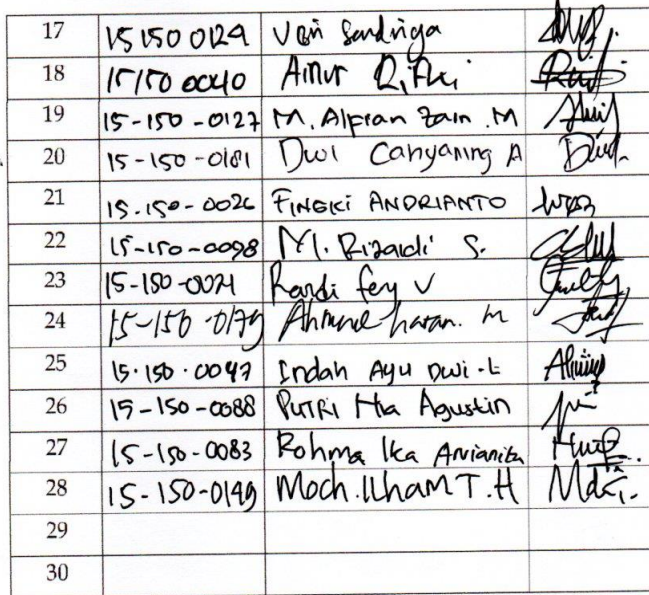 17 15 150 0129 Veri Sandriga
18 15150 0040 Ainur Rifki
19 15-150-0127 M. Alfian Zain .M
20 15-150-0181 Dwi Cahyaning A
21 15.150-0026 FINGKI ANDRIANTO
22 15-150-0098 M. Rizaldi S.
23 15-150-0021 Randi fery V
24 15-150-0179 hasan. M
25 15.150.0047 Indah Ayu Dwi-L
26 15-150-0088 PUTRI Nia Agustin
27 15-150-0083 Rohma Ika Arianita
28 15-150-0149 Moch.Ilham T.H
29
30